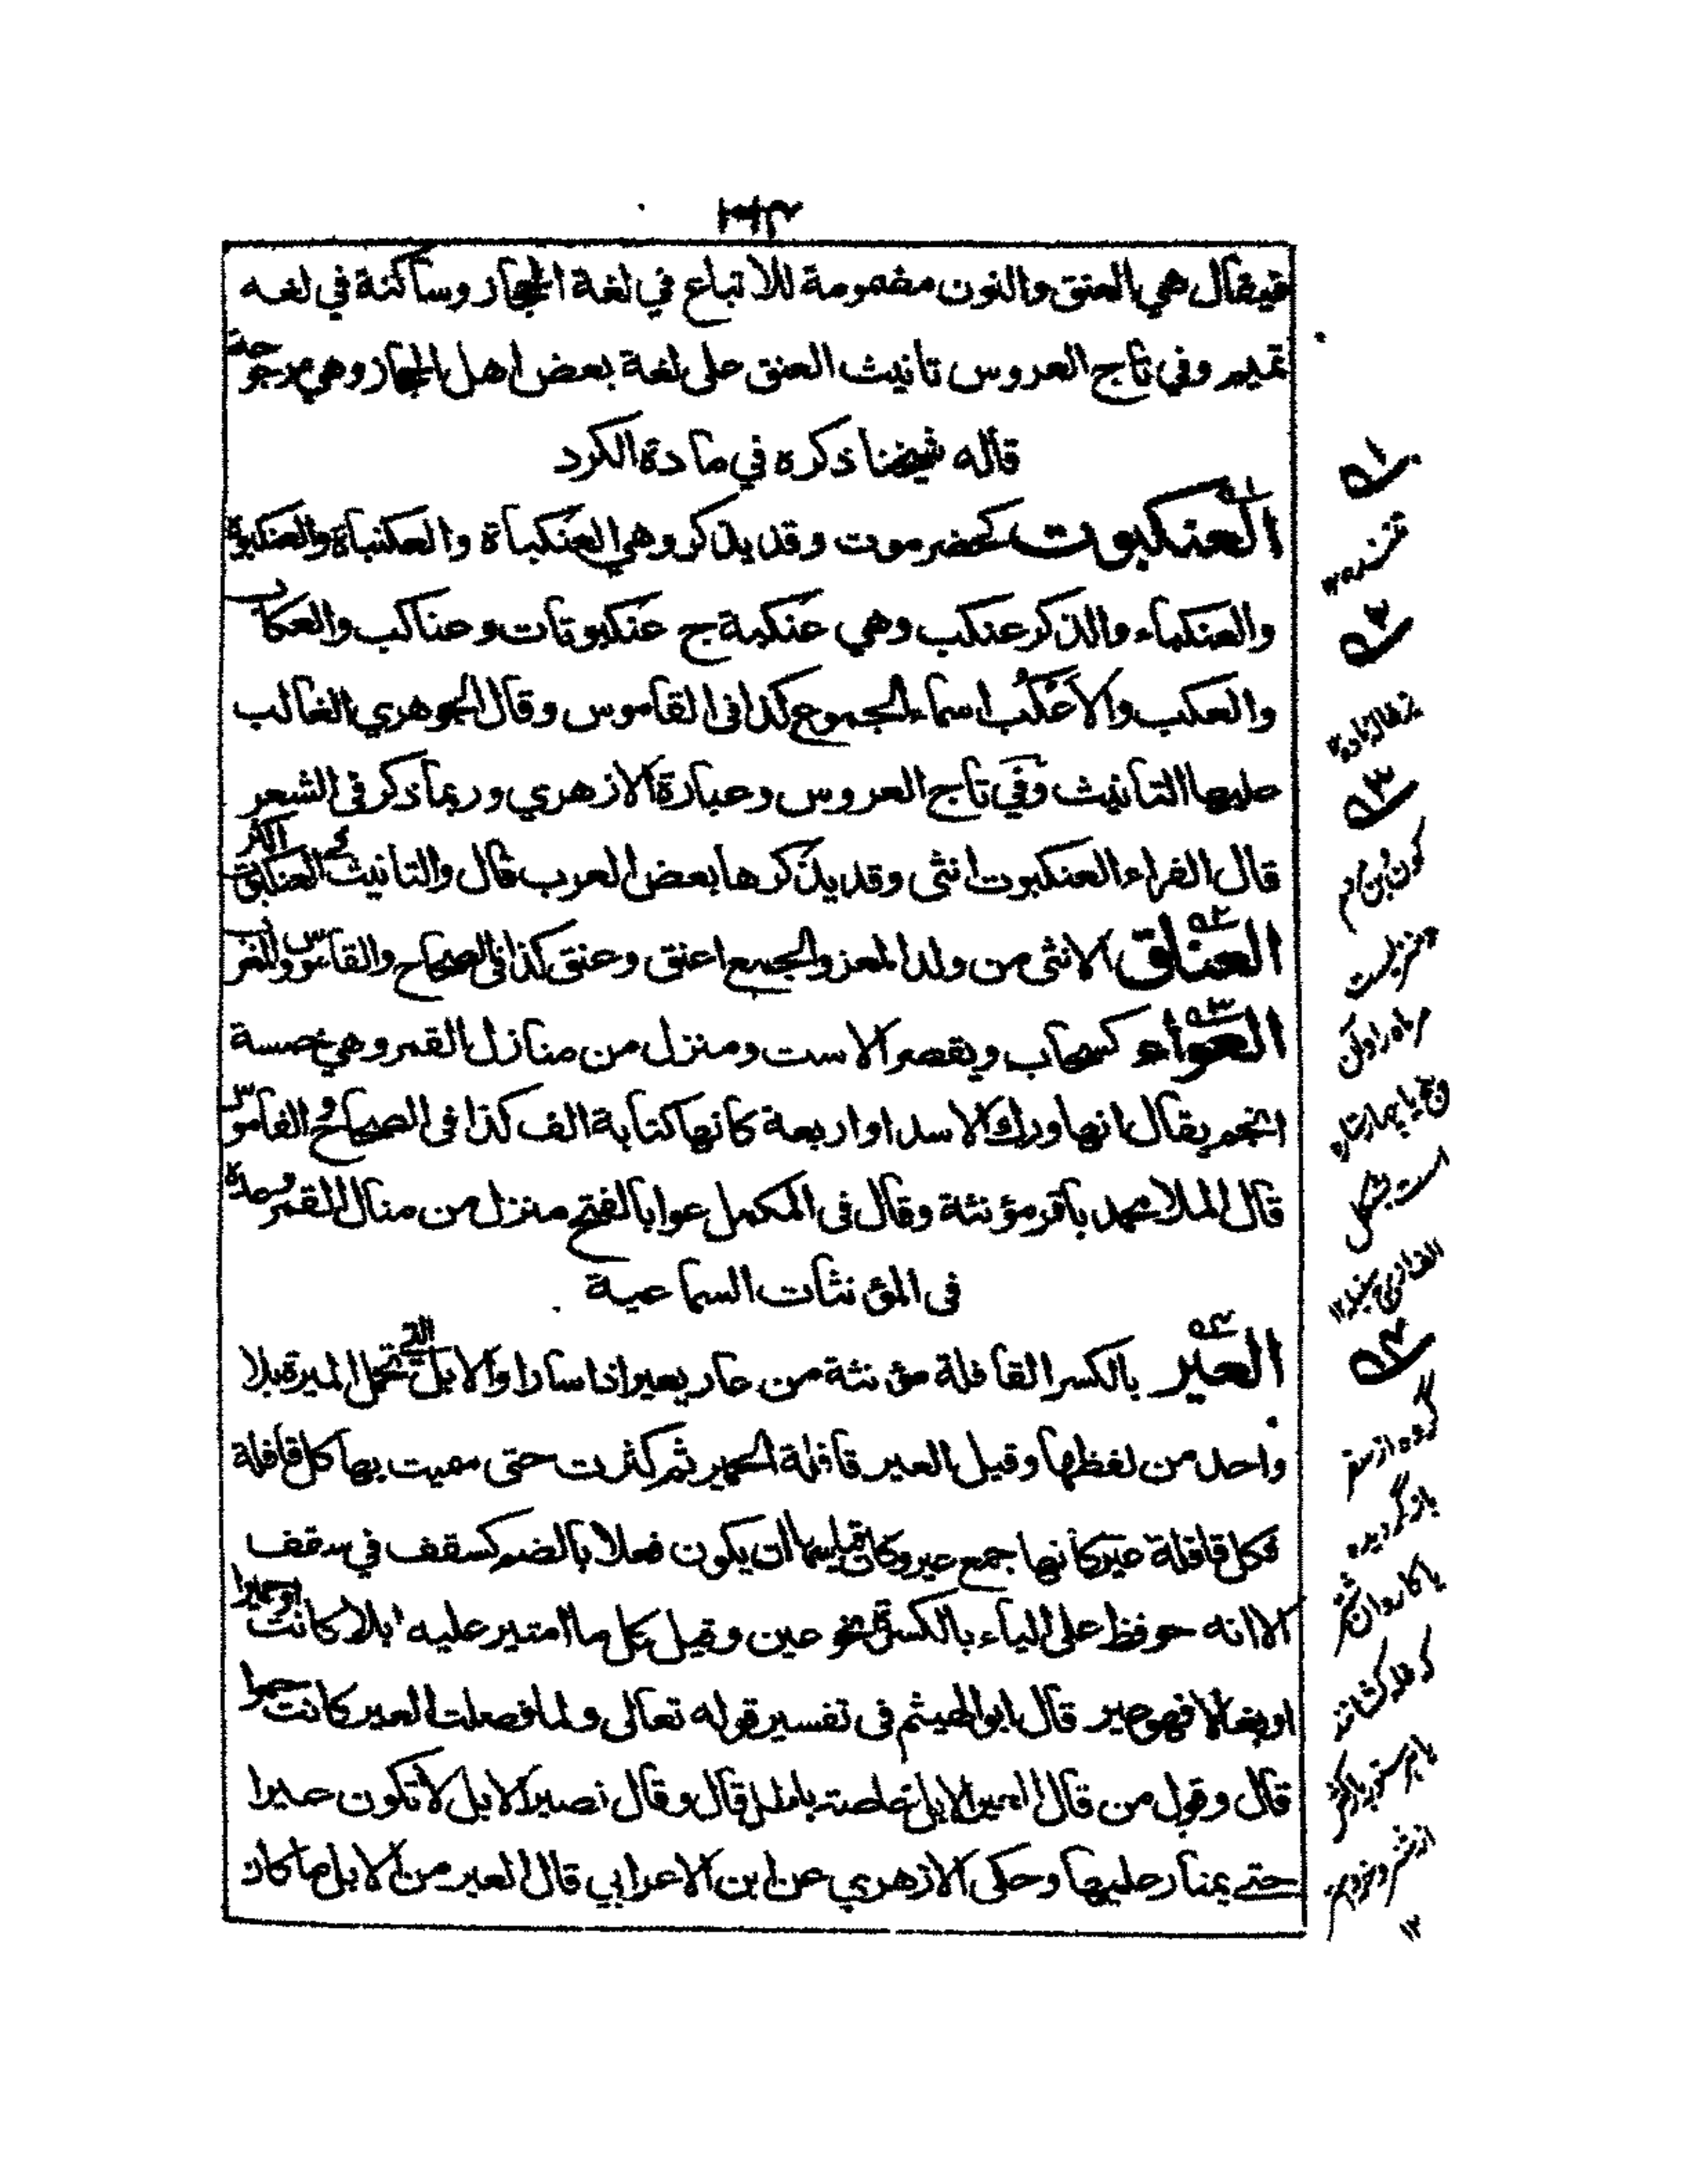 فيقال هي العنق والنون مضمومة للاتباع في لغة الحجاز وساكنة في لغة
تميم وفي تاج العروس تانيث العنق على لغة بعض اهل الحجاز وهي مرجوحة
قاله شيخنا ذكره في مادة الكرد
العنكبوت كحضرموت وقد يذكر وهي العنكباة والعكنباة والعنكبوة
والعنكباء والذكر عنكب وهي عنكبة ج عنكبوتات وعناكب والعكاب
والعكب والأعكب اسماء الجموع كذا فى القاموس وقال الجوهري الغالب
عليها التانيث وفي تاج العروس وعبارة الازهري وربما ذكر فى الشعر
قال الفراء العنكبوت انثى وقد يذكرها بعض العرب قال والتانيث فى العنكبوت اكثر
العناق الانثى من ولد المعز والجمع اعنق وعنق كذا فى الصحاح والقاموس والمغرب
العواء كسحاب ويقصر الاست ومنزل من منازل القمر وهي خمسة
انجم يقال انها ورك الاسد او اربعة كانها كتابة الف كذا فى الصحاح والقاموس
قال الملا محمد باقر مؤنثة وقال فى المكمل عوا بالفتح منزل من منازل القمر وعده
فى المؤنثات السماعية
العير بالكسر القافلة مؤنثة من عار يعير اذا سار او الابل التي تحمل الميرة بلا
واحد من لفظها وقيل العير قافلة الحمير ثم كثرت حتى سميت بها كل قافلة
فكل قافلة عير كانها جمع عير وكان قياسها ان يكون فعلا بالضم كسقف في سقف
الا انه حوفظ على الياء بالكسرة نحو عين وقيل كل ما امتير عليه ابلا كانت او حميرا
او بغالا فهو عير قال ابو الهيثم فى تفسير قوله تعالى ولما فصلت العير كانت حمرا
قال وقول من قال العير الابل خاصة باطل قال وقال نصير الابل لا تكون عيرا
حتى يمتار عليها وحكى الازهري عن ابن الاعرابي قال العير من الابل ما كان
۵۱
تننده ۱۲
۵۲
بزغاله ماده ۱۲
۵۳
منزليست
مر ماه را و آن
پنج يا چهار ستاره
است بشكل
الف
۵۴
گروه از سفر
باز گرديده
يا كاروان شتر
۱۲